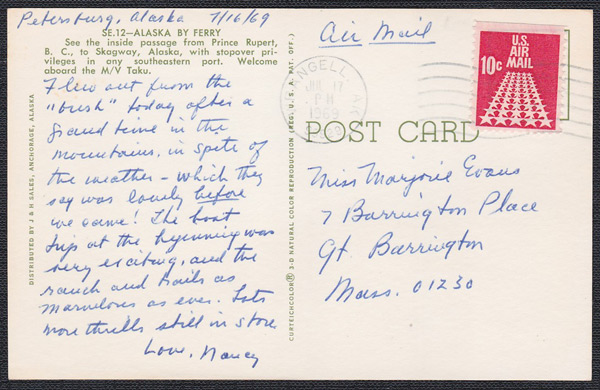 Petersburg, Alaska 7/16/69
SE.12—ALASKA BY FERRY
See the inside passage from Prince Rupert,
B. C., to Skagway, Alaska, with stopover pri-
vileges in any southeastern port. Welcome
aboard the M/V Taku.
Flew out from the
"bush" today after a
grand time in the
mountains, in spite of
the weather - which they
say was lovely before
we came! The boat
trip at the beginning was
very exciting, and the
ranch and trails as
marvelous as ever. Lots
more thrills still in store
Love, Nancy
DISTRIBUTED BY J & H SALES, ANCHORAGE, ALASKA
CURTEICHCOLOR® 3-D NATURAL COLOR REPRODUCTION (REG. U. S. A. PAT. OFF.)
Air Mail
U.S.
AIR
MAIL
10c
WRANGELL
JUL 17
PM
1969
POST CARD
Miss Marjorie Evans
7 Barrington Place
Gt. Barrington
Mass. 01230